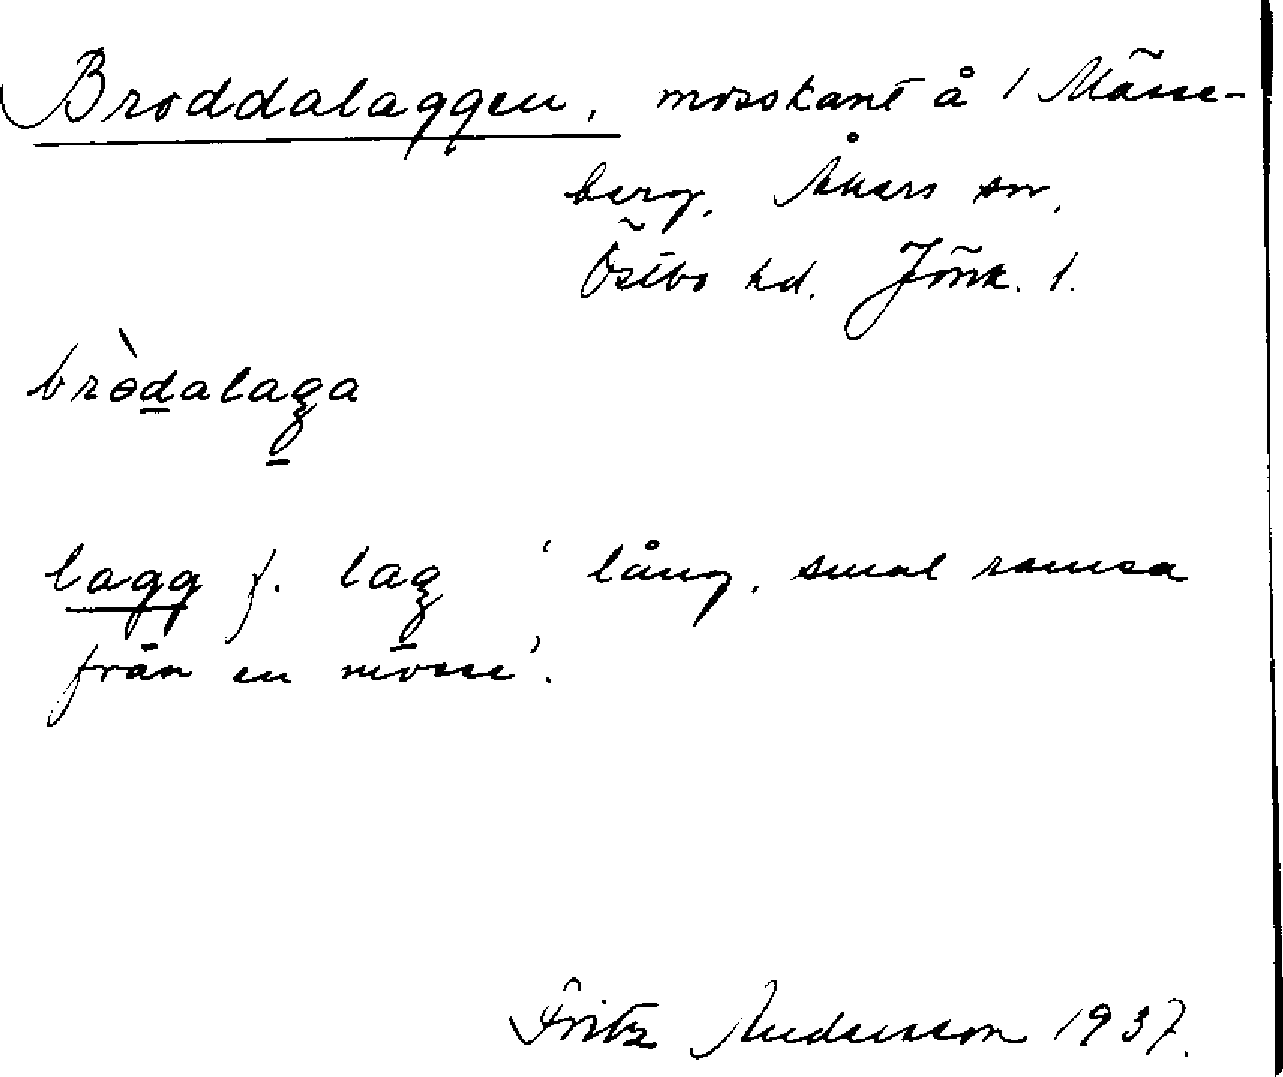 Broddalaggen, mosskant å 1 Mässe-
berg, Åkers sn,
Östbo hd. Jönk. l.
bròdalaga
lagg f. lag 'lång, smal remsa
från en mosse'.
Fritz Andersson 1937.